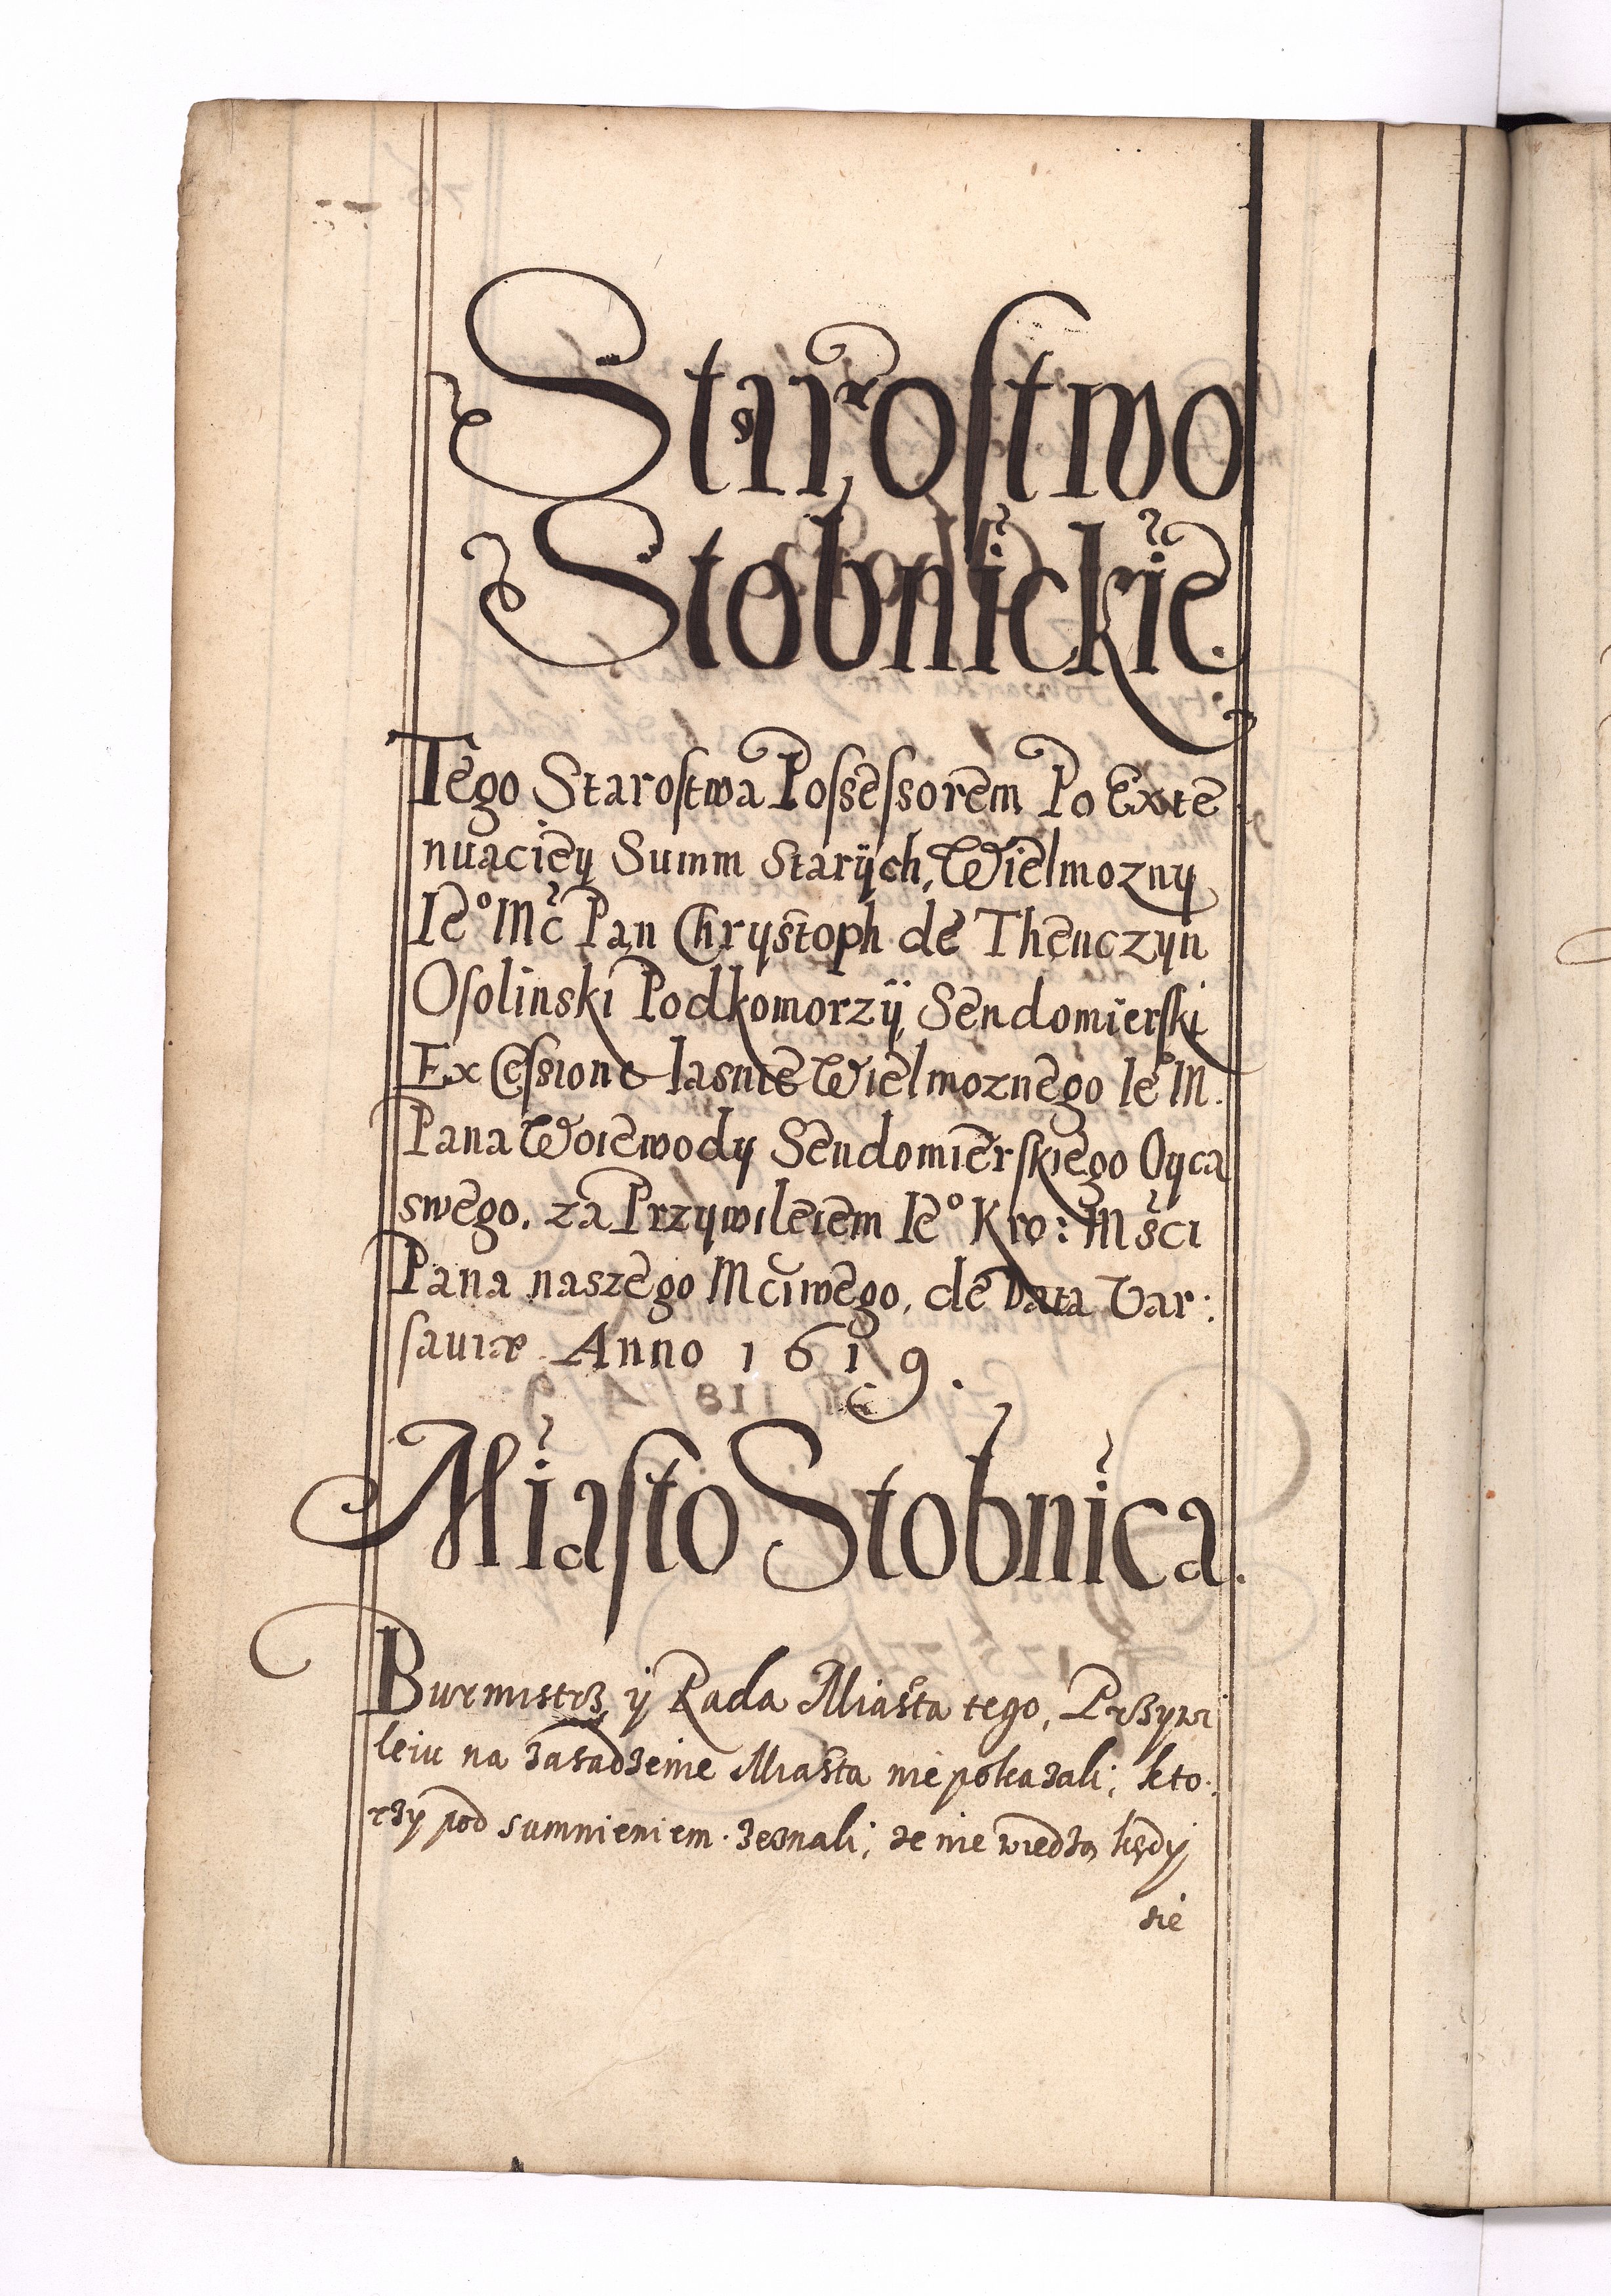 Starostwo
Stobnickie.
Tego Starostwa Possessorem Po Exte
nuaciey Summ Starÿch, Wielmozny
Ie° Mć Pan Chrystoph de Thenczyn
Osolinski Podkomorzÿ Sendomierski
Ex Cessione Iasnie Wielmoznego Ie° M.
Pana Woiewody Sendomierskiego Oyca
swego. za Przywileiem Ie° Kro: Mści
Pana naszego Mćiwego, de Data Var:
sauiæ Anno 1619.
Miasto Stobnica.
Burmistrz ÿ Rada Miasta tego, Przywi
leiu na zasadzenie Miasta nie pokazali; kto.
rzy pod sumnieniem zeznali; ze nie wiedzą kędy
sie